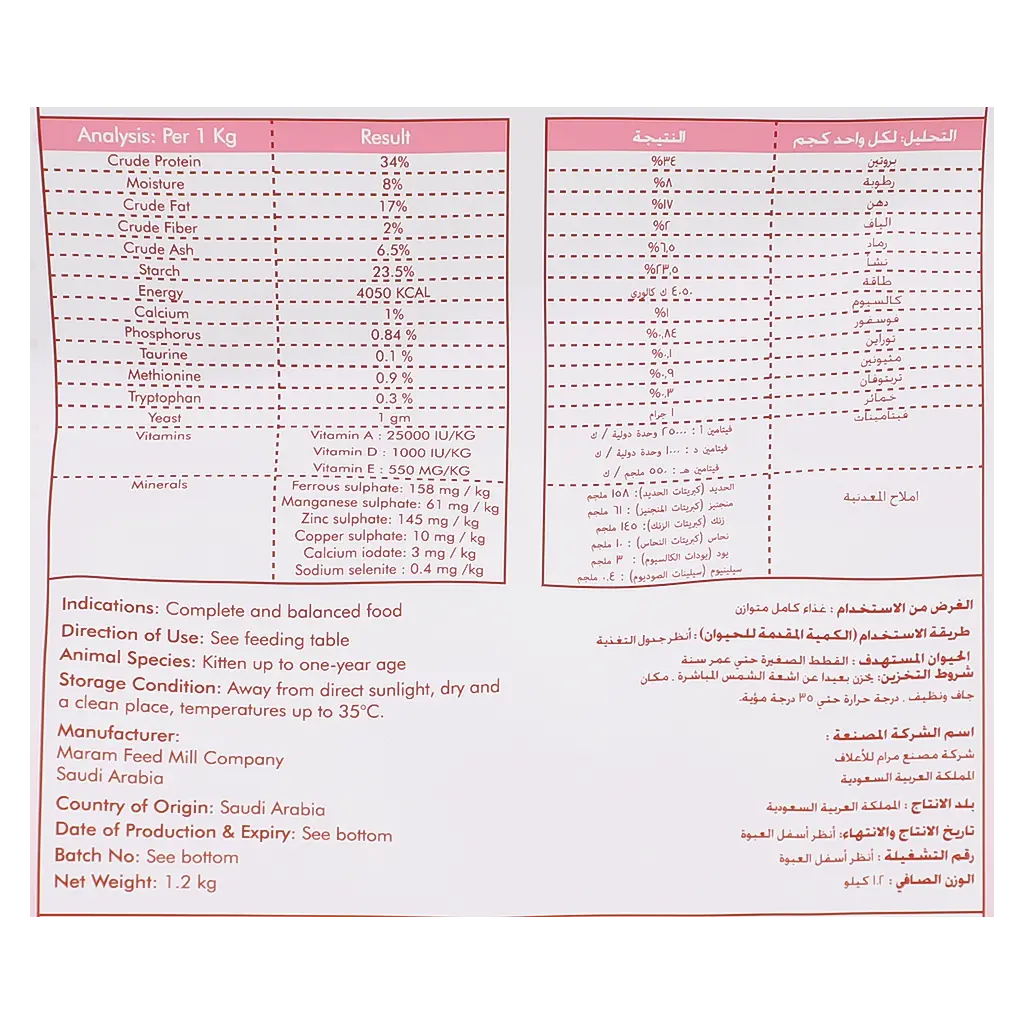 Analysis: Per 1 Kg Result
Crude Protein 34%
Moisture 8%
Crude Fat 17%
Crude Fiber 2%
Crude Ash 6.5%
Starch 23.5%
Energy 4050 KCAL
Calcium 1%
Phosphorus 0.84 %
Taurine 0.1 %
Methionine 0.9 %
Tryptophan 0.3 %
Yeast 1 gm
Vitamins Vitamin A : 25000 IU/KG
Vitamin D : 1000 IU/KG
Vitamin E : 550 MG/KG
Minerals Ferrous sulphate: 158 mg / kg
Manganese sulphate: 61 mg / kg
Zinc sulphate: 145 mg / kg
Copper sulphate: 10 mg / kg
Calcium iodate: 3 mg / kg
Sodium selenite : 0.4 mg /kg
Indications: Complete and balanced food
Direction of Use: See feeding table
Animal Species: Kitten up to one-year age
Storage Condition: Away from direct sunlight, dry and
a clean place, temperatures up to 35°C.
Manufacturer:
Maram Feed Mill Company
Saudi Arabia
Country of Origin: Saudi Arabia
Date of Production & Expiry: See bottom
Batch No: See bottom
Net Weight: 1.2 kg
التحليل: لكل واحد كجم النتيجة
بروتين ٣٤%
رطوبة ٨%
دهن ١٧%
الياف ٢%
رماد ٦,٥%
نشا ٢٣,٥%
طاقة ٤٠٥٠ ك كالوري
كالسيوم ١%
فوسفور ٠,٨٤%
توراين ٠,١%
مثيونين ٠,٩%
تربتوفان ٠,٣%
خمائر ١ جرام
فيتامينات فيتامين أ : ٢٥٠٠٠ وحدة دولية / ك
فيتامين د : ١٠٠٠ وحدة دولية / ك
فيتامين هـ : ٥٥٠ ملجم / ك
املاح المعدنية الحديد (كبريتات الحديد): ١٥٨ ملجم
منجنيز (كبريتات المنجنيز) : ٦١ ملجم
زنك (كبريتات الزنك): ١٤٥ ملجم
نحاس (كبريتات النحاس) : ١٠ ملجم
يود (يودات الكالسيوم) : ٣ ملجم
سيلينيوم (سيلينات الصوديوم) : ٠.٤ ملجم
الغرض من الاستخدام : غذاء كامل متوازن
طريقة الاستخدام (الكمية المقدمة للحيوان) : أنظر جدول التغذية
الحيوان المستهدف : القطط الصغيرة حتي عمر سنة
شروط التخزين: يخزن بعيدا عن اشعة الشمس المباشرة . مكان
جاف ونظيف . درجة حرارة حتي ٣٥ درجة مؤية.
اسم الشركة المصنعة :
شركة مصنع مرام للأعلاف
المملكة العربية السعودية
بلد الانتاج : المملكة العربية السعودية
تاريخ الانتاج والانتهاء: أنظر أسفل العبوة
رقم التشغيلة : أنظر أسفل العبوة
الوزن الصافي : ١.٢ كيلو